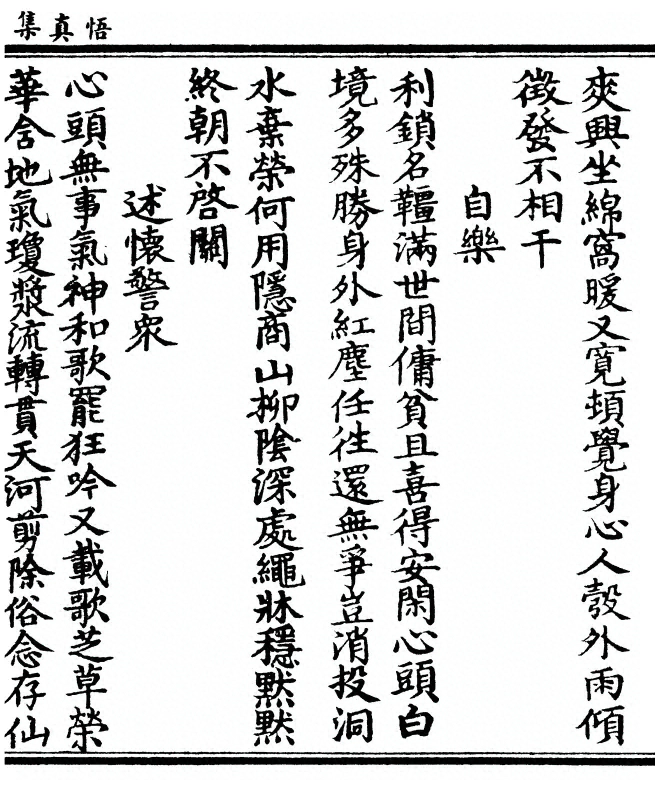 悟真集
爽興坐綿窩暖又寬頓覺身心人彀外雨傾
徵發不相干
自樂
利鎖名韁滿世間傭貧且喜得安閑心頭白
境多殊勝身外紅塵任往還無爭豈消投洞
水棄榮何用隱商山柳陰深處繩牀穩默默
終朝不啓關
述懷警衆
心頭無事氣神和歌罷狂吟又載歌芝草榮
華含地氣瓊漿流轉貫天河剪除俗念存仙